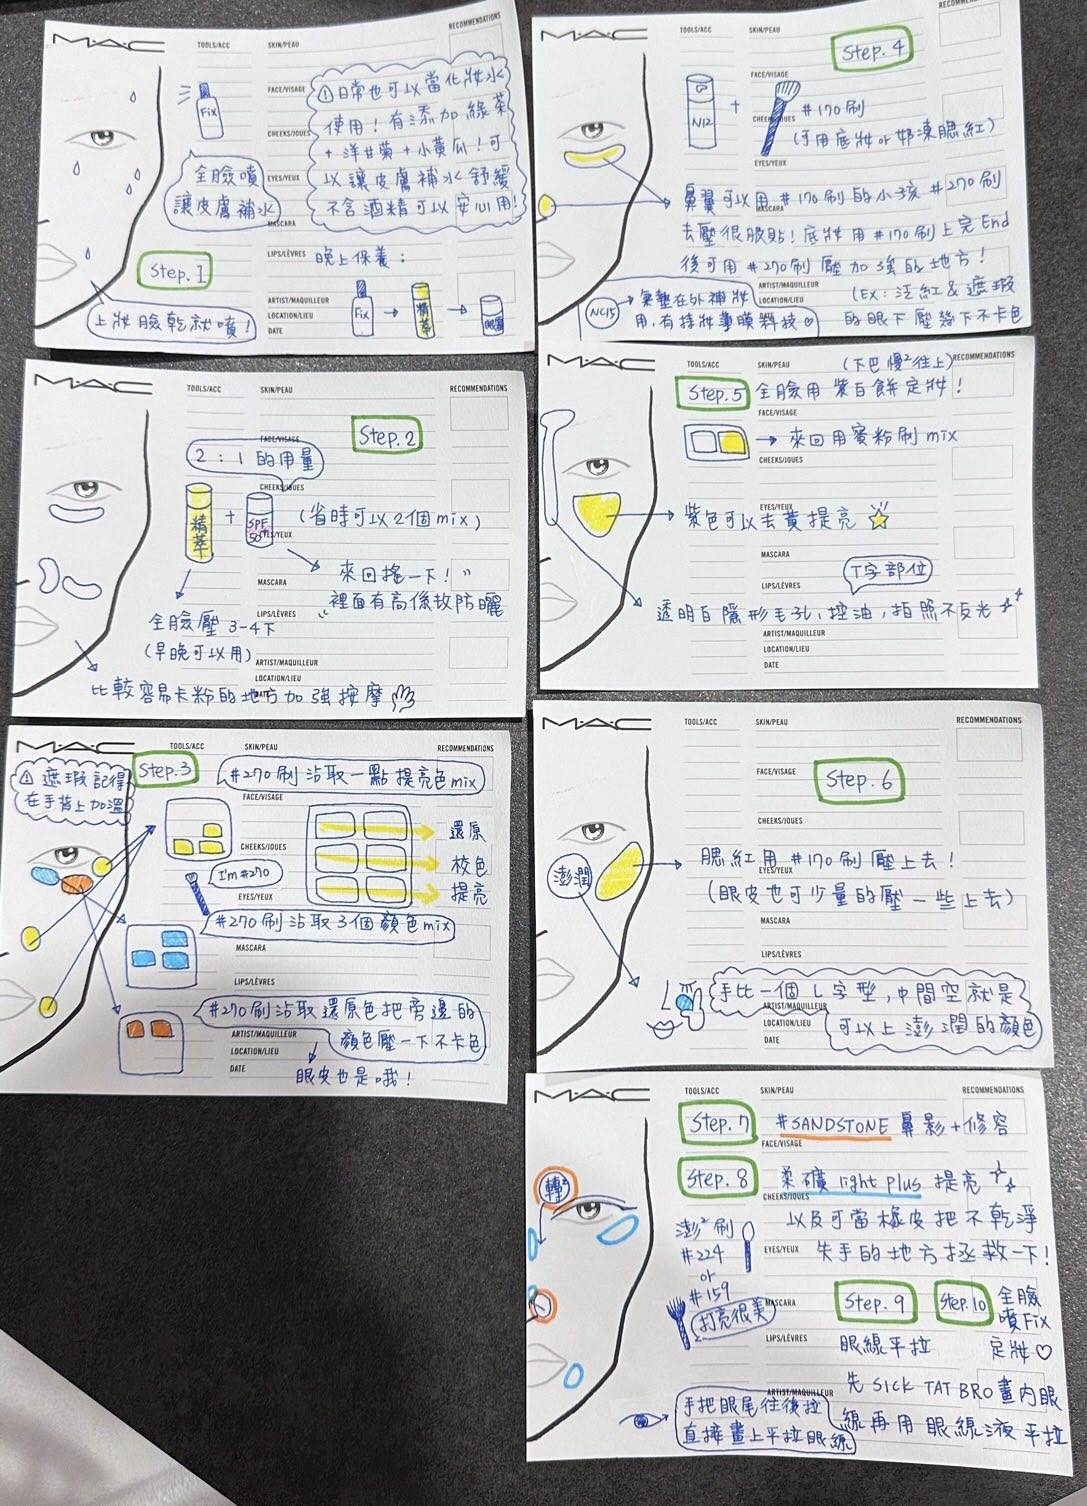 MAC
TOOLS/ACC
SKIN/PEAU
RECOMMENDATIONS
FACE/VISAGE
CHEEKS/JOUES
EYES/YEUX
MASCARA
LIPS/LÈVRES
ARTIST/MAQUILLEUR
LOCATION/LIEU
DATE
Fix
①日常也可以當化妝水
使用！有添加綠茶
+洋甘菊+小黃瓜！可
以讓皮膚補水舒緩
不含酒精可以安心用！
全臉噴
讓皮膚補水
Step.1
上妝臉乾就噴！
晚上保養：
Fix
精萃
MAC
TOOLS/ACC
SKIN/PEAU
RECOMMENDATIONS
FACE/VISAGE
CHEEKS/JOUES
EYES/YEUX
MASCARA
LIPS/LÈVRES
ARTIST/MAQUILLEUR
LOCATION/LIEU
DATE
Step.2
2：1的用量
精萃
+
SPF
50
(省時可以2個mix)
來回搖一下！
裡面有高係數防曬
全臉壓3-4下
(早晚可以用)
比較容易卡粉的地方加強按摩
MAC
TOOLS/ACC
SKIN/PEAU
RECOMMENDATIONS
FACE/VISAGE
CHEEKS/JOUES
EYES/YEUX
MASCARA
LIPS/LÈVRES
ARTIST/MAQUILLEUR
LOCATION/LIEU
DATE
①遮瑕記得
在手背上加溫
Step.3
#270刷沾取一點提亮色mix
還原
校色
提亮
I'm #270
#270刷沾取3個顏色mix
#270刷沾取還原色把旁邊的
顏色壓一下不卡色
眼皮也是哦！
MAC
TOOLS/ACC
SKIN/PEAU
RECOMMENDATIONS
FACE/VISAGE
CHEEKS/JOUES
EYES/YEUX
MASCARA
ARTIST/MAQUILLEUR
LOCATION/LIEU
Step.4
N12
+
#170刷
(可用底妝or奶凍腮紅)
鼻翼可以用#170刷的小孩#270刷
去壓很服貼！底妝用#170刷上完End
後可用#270刷壓加強的地方！
(Ex：泛紅&遮瑕
的眼下壓幾下不卡色
NC15
氣墊在外補妝
用，有持妝養膜科技
MAC
TOOLS/ACC
SKIN/PEAU
RECOMMENDATIONS
FACE/VISAGE
CHEEKS/JOUES
EYES/YEUX
MASCARA
LIPS/LÈVRES
ARTIST/MAQUILLEUR
LOCATION/LIEU
DATE
(下巴慢²往上)
Step.5
全臉用紫白餅定妝！
來回用蜜粉刷mix
紫色可以去黃提亮
T字部位
透明白隱形毛孔，控油，拍照不反光
MAC
TOOLS/ACC
SKIN/PEAU
RECOMMENDATIONS
FACE/VISAGE
CHEEKS/JOUES
EYES/YEUX
MASCARA
LIPS/LÈVRES
ARTIST/MAQUILLEUR
LOCATION/LIEU
DATE
Step.6
澎潤
腮紅用#170刷壓上去！
(眼皮也可少量的壓一些上去)
手比一個L字型，中間空就是
可以上澎潤的顏色
MAC
TOOLS/ACC
SKIN/PEAU
RECOMMENDATIONS
FACE/VISAGE
CHEEKS/JOUES
EYES/YEUX
MASCARA
LIPS/LÈVRES
ARTIST/MAQUILLEUR
Step.7
#SANDSTONE鼻影+修容
Step.8
柔礦light plus提亮
以及可當橡皮把不乾淨
失手的地方拯救一下！
轉²
澎²刷
#224
or
#159
打亮很美
Step.9
眼線平拉
Step.10
全臉
噴Fix
定妝♡
先SICK TAT BRO畫內眼
線再用眼線液平拉
手把眼尾往後拉
直接畫上平拉眼線